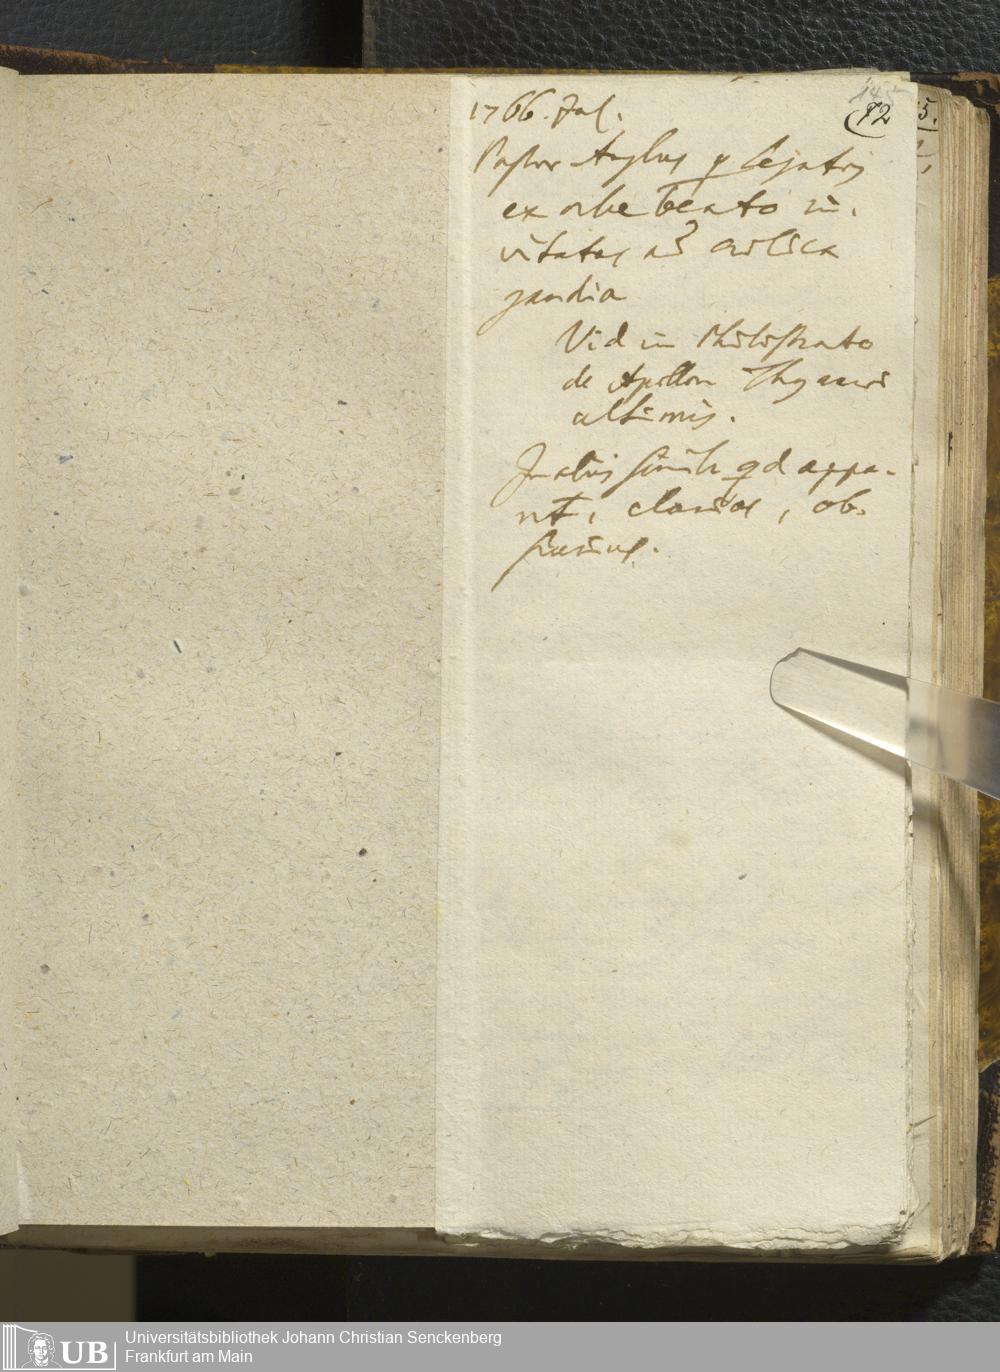 1766. Jul.
145
(72
5.
Pastor Anglus p legatos
ex orbe beato in.
vitatus ad coelica
gaudia
Vid in Philostrato
de Apollon Thyanei
ultimis.
In aliis simile qd appa-
ret, clarius, ob-
scurius.
Universitätsbibliothek Johann Christian Senckenberg
Frankfurt am Main
UB